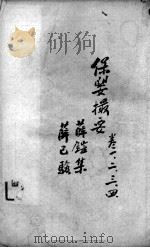 保嬰撮要 卷一、二、三、四
薛鎧集
薛己驗